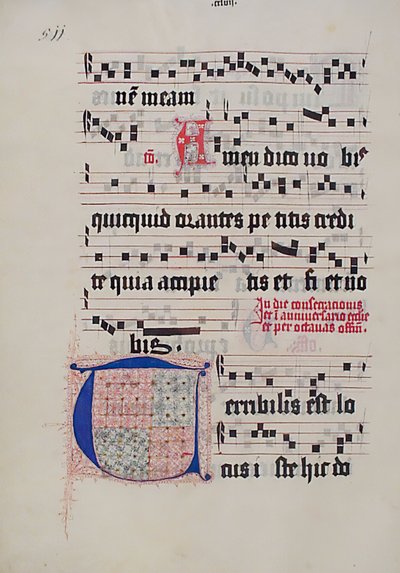 nē meam
co. Amen dico vo bis
quicquid orantes pe titis credi
te quia accipie tis et fi et vo
bis.
In die consecrationis
et ī anniversario
et per octavas offm.
Terribilis est lo
cus i ste hic do